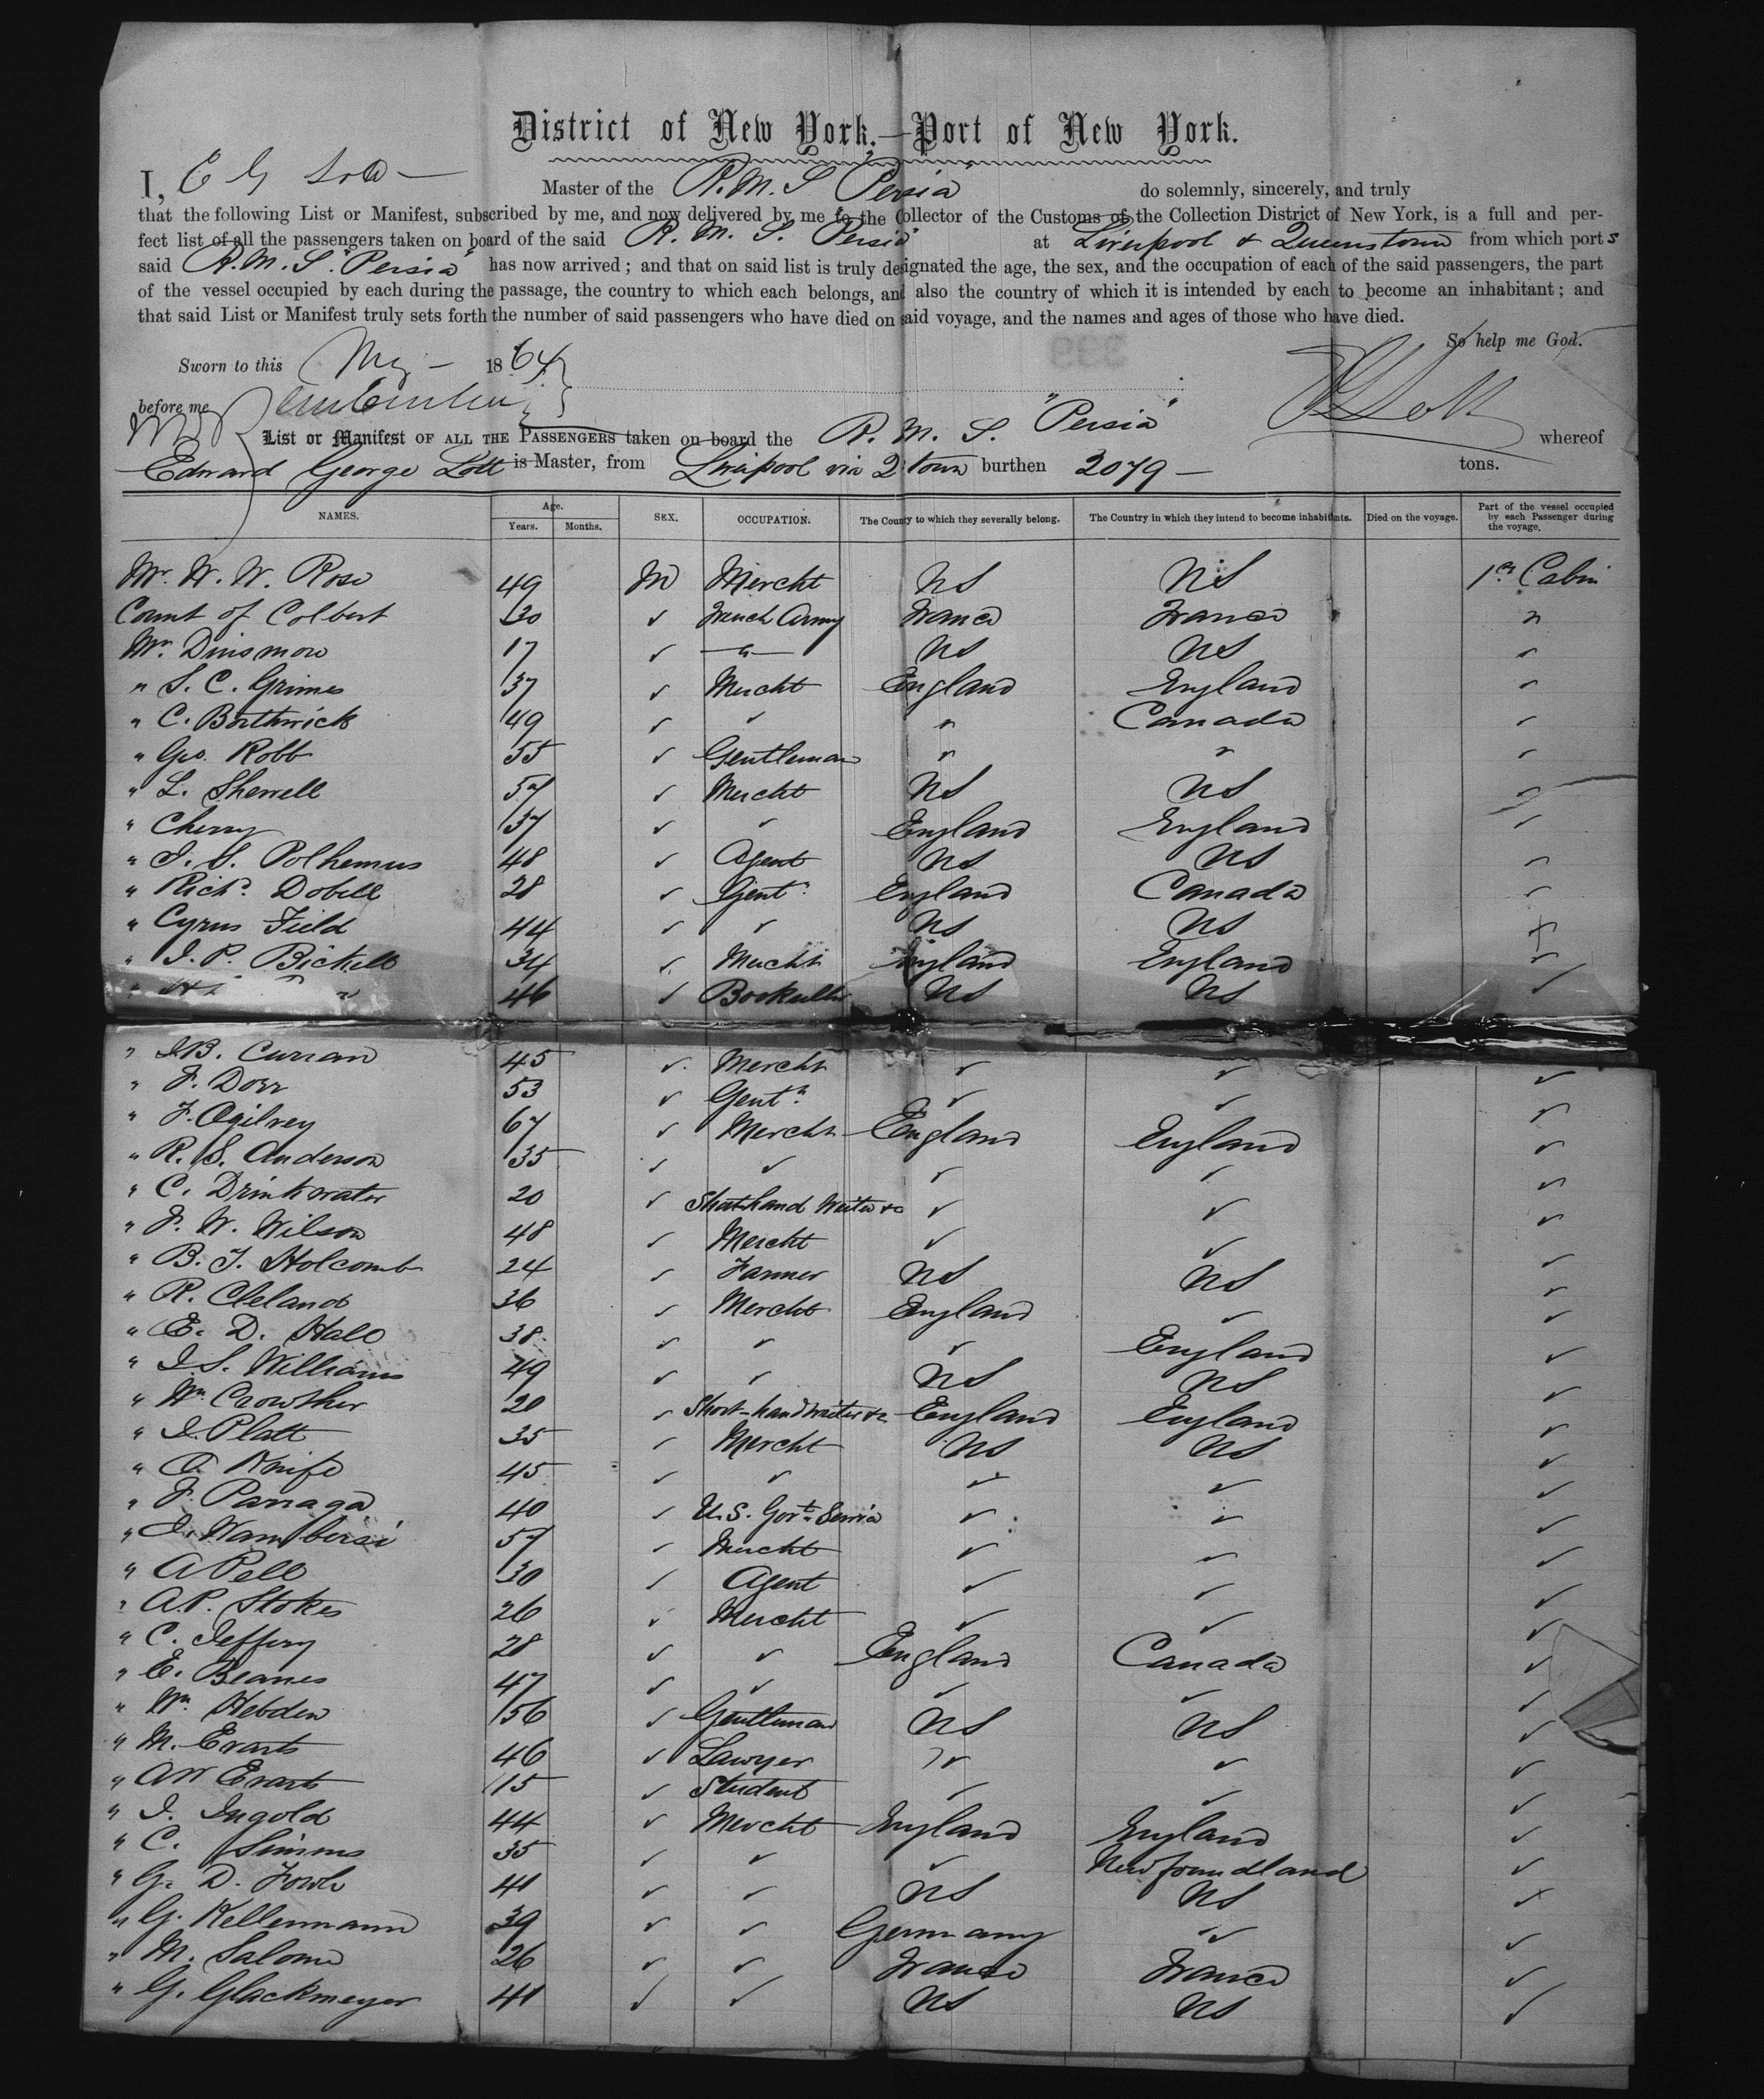 District of New York,—Port of New York.
I, E G Lott — Master of the R. M. S "Persia" do solemnly, sincerely, and truly
that the following List or Manifest, subscribed by me, and now delivered by me to the Collector of the Customs of the Collection District of New York, is a full and per-
fect list of all the passengers taken on board of the said R. M. S. "Persia" at Liverpool & Queenstown from which ports
said R. M. S "Persia" has now arrived; and that on said list is truly designated the age, the sex, and the occupation of each of the said passengers, the part
of the vessel occupied by each during the passage, the country to which each belongs, and also the country of which it is intended by each to become an inhabitant; and
that said List or Manifest truly sets forth the number of said passengers who have died on said voyage, and the names and ages of those who have died.
So help me God.
Sworn to this May — 1864
before me
E G Lott
List or Manifest OF ALL THE PASSENGERS taken on board the R. M. S. "Persia" whereof
Edward George Lott is Master, from Liverpool via Q'town burthen 2079 — tons.
NAMES. Age. Years. Months. SEX. OCCUPATION. The County to which they severally belong. The Country in which they intend to become inhabitants. Died on the voyage. Part of the vessel occupied by each Passenger during the voyage.
Mr. W. W. Rose 49 M Mercht US US 1st Cabin
Count of Colbert 30 ✓ French Army France France "
Mr. Dinsmow 17 ✓ — " — US US ✓
" S. C. Grimes 37 ✓ Mercht England England ✓
" C. Borthwick 49 ✓ ✓ " Canada ✓
" Geo. Robb 55 ✓ Gentleman ✓ ✓ ✓
" L. Sherrell 57 ✓ Mercht US US ✓
" Cherry 37 ✓ ✓ England England ✓
" I. G. Polhemus 48 ✓ Agent US US ✓
" Richd. Dobell 28 ✓ Gent. England Canada ✓
" Cyrus Field 44 ✓ ✓ US US ✓
" J. P. Bickell 34 ✓ Mercht England England ✓
" 46 ✓ Bookseller US US ✓
" J.B. Curran 45 ✓ Mercht ✓ ✓ ✓
" F. Dorr 53 ✓ Gentn. ✓ ✓ ✓
" F. Ogilvey 67 ✓ Mercht England England ✓
" R. S. Anderson 35 ✓ ✓ ✓ ✓ ✓
" C. Drinkwater 20 ✓ Shorthand Writer &c ✓ ✓ ✓
" F. W. Wilson 48 ✓ Mercht ✓ ✓ ✓
" B. T. Holcomb 24 ✓ Farmer US US ✓
" R. Cleland 36 ✓ Mercht England ✓ ✓
" E. D. Hall 38 ✓ ✓ ✓ England ✓
" I. S. Williams 49 ✓ ✓ US US ✓
" Wm. Crowther 20 ✓ Short-hand writer &c England England ✓
" I. Platt 35 ✓ Mercht US US ✓
" O. Knife 45 ✓ ✓ ✓ ✓ ✓
" F. Parraga 40 ✓ U.S. Govt. Service ✓ ✓ ✓
" I. Wambersi 57 ✓ Mercht ✓ ✓ ✓
" A Pell 30 ✓ Agent ✓ ✓ ✓
" A.P. Stokes 26 ✓ Mercht ✓ ✓ ✓
" C. Jeffery 28 ✓ ✓ England Canada ✓
" E. Beanes 47 ✓ ✓ ✓ ✓ ✓
" Wm. Hebden 56 ✓ Gentleman US US ✓
" M. Evarts 46 ✓ Lawyer ✓ ✓ ✓
" AW Evarts 15 ✓ Student ✓ ✓ ✓
" I. Ingold 44 ✓ Mercht England England ✓
" C. Simms 35 ✓ ✓ ✓ Newfoundland ✓
" G. D. Fowle 41 ✓ ✓ US US ✓
" G. Kellermann 39 ✓ ✓ Germany ✓ ✓
" M. Salome 26 ✓ ✓ France France ✓
" G. Glackmeyer 41 ✓ ✓ US US ✓